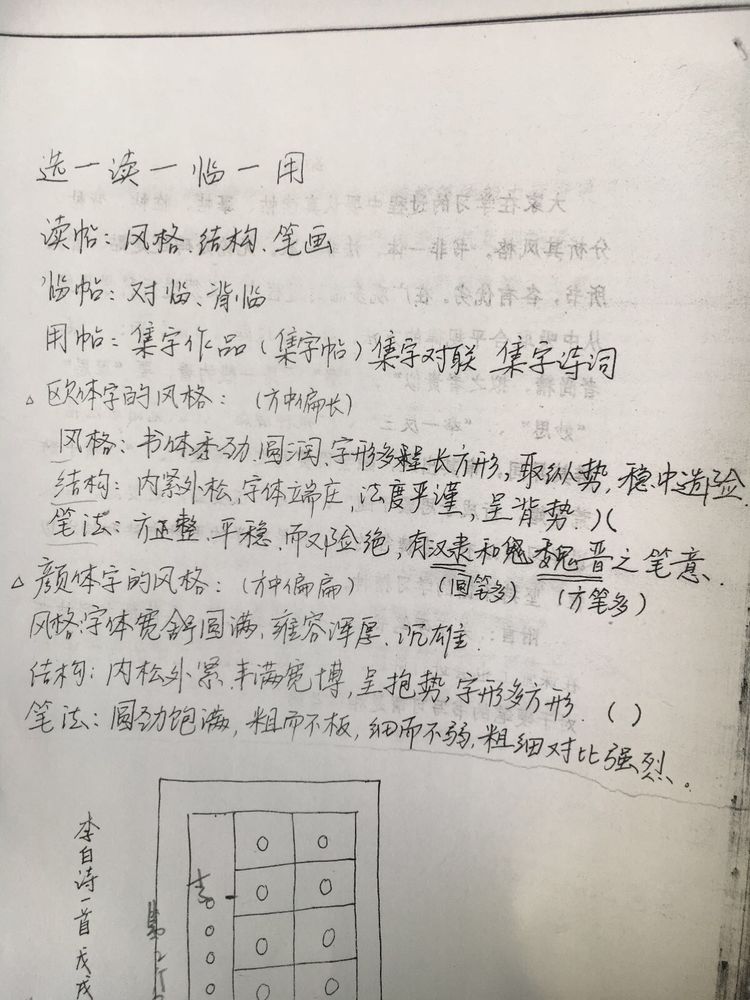 选一读一临一用
读帖：风格、结构、笔画
临帖：对临、背临
用帖：集字作品（集字帖）集字对联 集字诗词
△欧体字的风格：（方中偏长）
风格：书体秀劲、圆润、字形多呈长方形，取纵势，稳中造险
结构：内紧外松，字体端庄，法度严谨，呈背势.）(
笔法：方正整、平稳、而又险绝，有汉隶和魏晋之笔意.
（圆笔多）（方笔多）
△颜体字的风格：（方中偏扁）
风格：字体宽舒圆满，雍容浑厚、沉雄.
结构：内松外紧.丰满宽博，呈抱势，字形多方形.（）
笔法：圆劲饱满，粗而不板，细而不弱，粗细对比强烈。
李白诗一首 戊戌
李
大家在学习的过程中
分析其风格。书非一体，
所书，各有优劣。在广
“妙思”、“举一反三